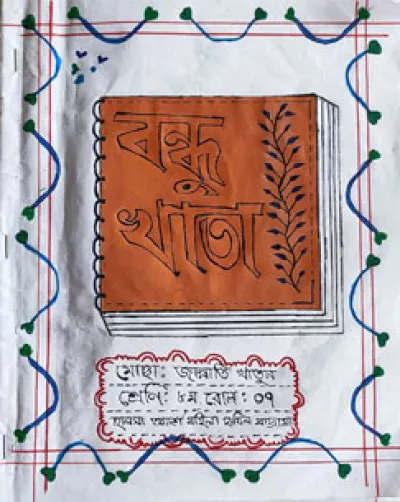 বন্ধু
খাতা
মোছা: জান্নাতি খাতুন
শ্রেণি: ৮ম রোল: ০৭
মহিলা দাখিল মাদ্রাসা